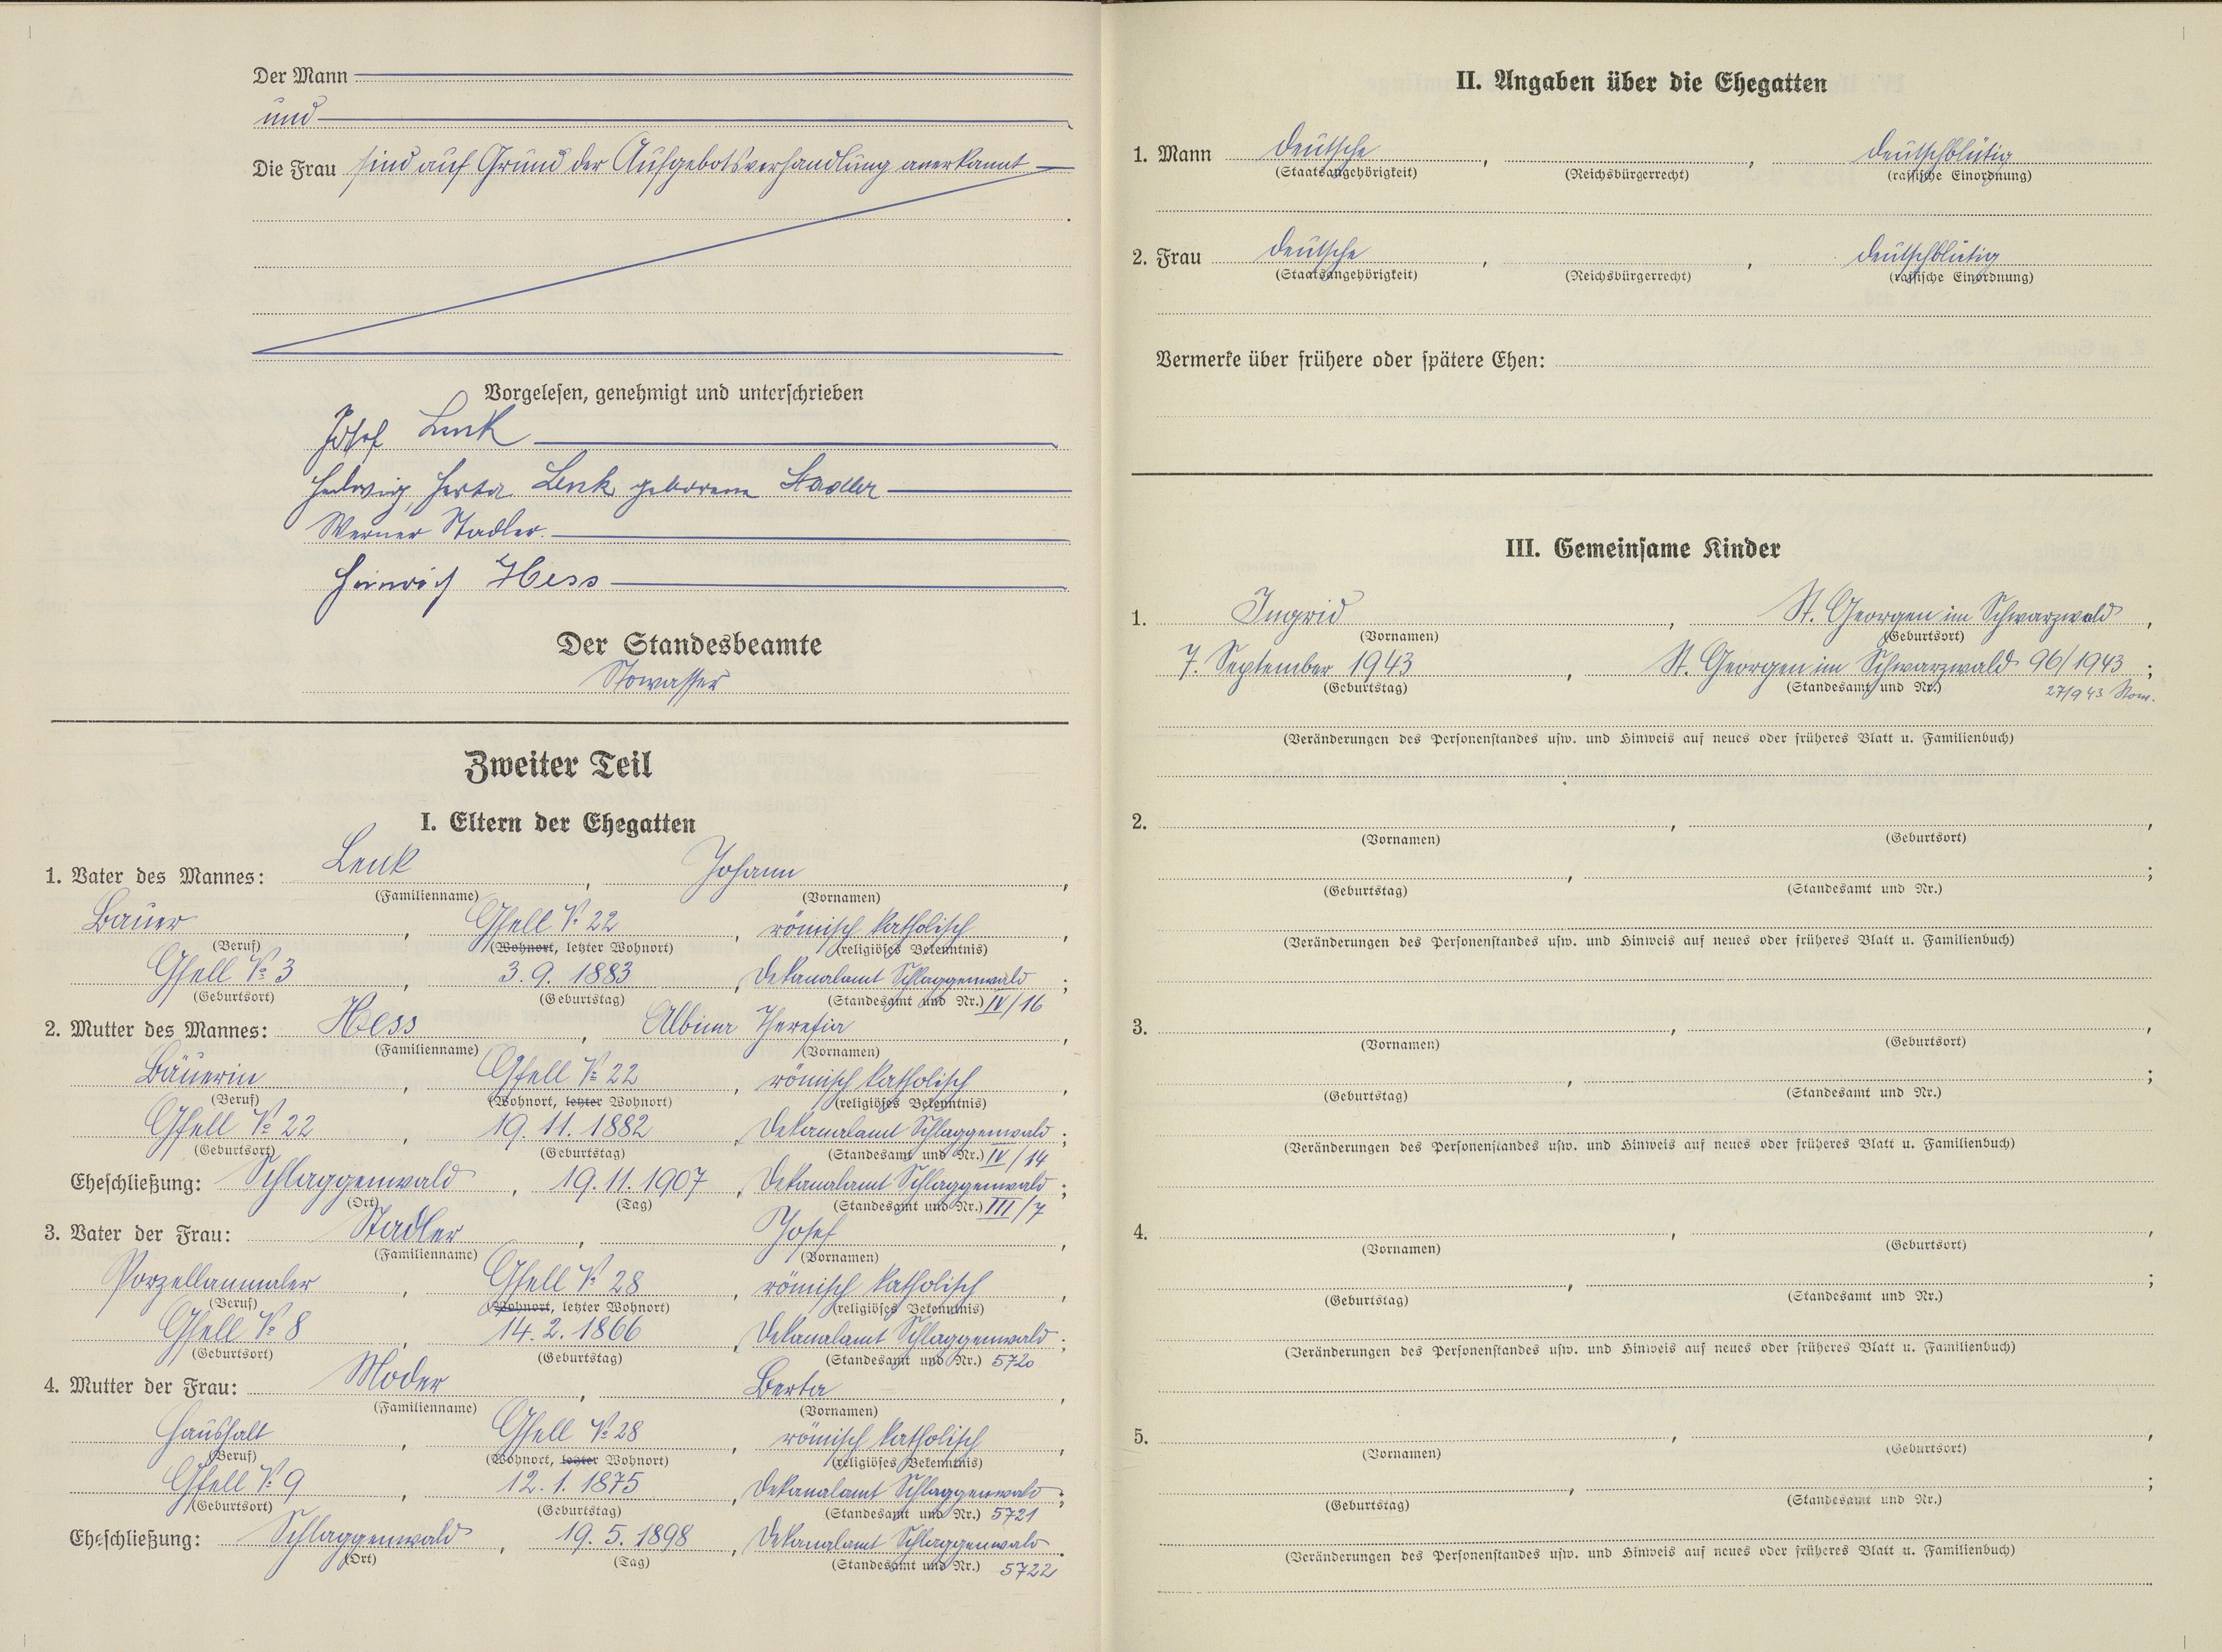 Der Mann
und
Die Frau sind auf Grund der Aufgebotsverhandlung anerkannt
Vorgelesen, genehmigt und unterschrieben
Josef Lenk
Hedwig, Herta Lenk geborene Stadler
Werner Stadler.
Heinrich Hess
Der Standesbeamte
Stowasser
Zweiter Teil
I. Eltern der Ehegatten
1. Vater des Mannes: Lenk, Johann,
(Familienname) (Vornamen)
Bauer, Gfell № 22, römisch katholisch,
(Beruf) (Wohnort, letzter Wohnort) (religiöses Bekenntnis)
Gfell № 3, 3.9.1883, Dekanalamt Schlaggenwald;
(Geburtsort) (Geburtstag) (Standesamt und Nr.) IV/16
2. Mutter des Mannes: Hess, Albina Theresia,
(Familienname) (Vornamen)
Bäuerin, Gfell № 22, römisch katholisch,
(Beruf) (Wohnort, letzter Wohnort) (religiöses Bekenntnis)
Gfell № 22, 19.11.1882, Dekanalamt Schlaggenwald;
(Geburtsort) (Geburtstag) (Standesamt und Nr.) IV/14
Eheschließung: Schlaggenwald, 19.11.1907, Dekanalamt Schlaggenwald;
(Ort) (Tag) (Standesamt und Nr.) III/7
3. Vater der Frau: Stadler, Josef,
(Familienname) (Vornamen)
Porzellanmaler, Gfell № 28, römisch katholisch,
(Beruf) (Wohnort, letzter Wohnort) (religiöses Bekenntnis)
Gfell № 8, 14.2.1866, Dekanalamt Schlaggenwald;
(Geburtsort) (Geburtstag) (Standesamt und Nr.) 5720
4. Mutter der Frau: Moder, Berta,
(Familienname) (Vornamen)
Haushalt, Gfell № 28, römisch katholisch,
(Beruf) (Wohnort, letzter Wohnort) (religiöses Bekenntnis)
Gfell № 9, 12.1.1875, Dekanalamt Schlaggenwald;
(Geburtsort) (Geburtstag) (Standesamt und Nr.) 5721
Eheschließung: Schlaggenwald, 19.5.1898, Dekanalamt Schlaggenwald.
(Ort) (Tag) (Standesamt und Nr.) 5722
II. Angaben über die Ehegatten
1. Mann deutsche, , deutschblütig
(Staatsangehörigkeit) (Reichsbürgerrecht) (rassische Einordnung)
2. Frau deutsche, , deutschblütig
(Staatsangehörigkeit) (Reichsbürgerrecht) (rassische Einordnung)
Vermerke über frühere oder spätere Ehen:
III. Gemeinsame Kinder
1. Ingrid, St. Georgen im Schwarzwald,
(Vornamen) (Geburtsort)
7. September 1943, St. Georgen im Schwarzwald 96/1943;
(Geburtstag) (Standesamt und Nr.) 27/9 43 Stow.
(Veränderungen des Personenstandes usw. und Hinweis auf neues oder früheres Blatt u. Familienbuch)
2. , ,
(Vornamen) (Geburtsort)
, ;
(Geburtstag) (Standesamt und Nr.)
(Veränderungen des Personenstandes usw. und Hinweis auf neues oder früheres Blatt u. Familienbuch)
3. , ,
(Vornamen) (Geburtsort)
, ;
(Geburtstag) (Standesamt und Nr.)
(Veränderungen des Personenstandes usw. und Hinweis auf neues oder früheres Blatt u. Familienbuch)
4. , ,
(Vornamen) (Geburtsort)
, ;
(Geburtstag) (Standesamt und Nr.)
(Veränderungen des Personenstandes usw. und Hinweis auf neues oder früheres Blatt u. Familienbuch)
5. , ,
(Vornamen) (Geburtsort)
, ;
(Geburtstag) (Standesamt und Nr.)
(Veränderungen des Personenstandes usw. und Hinweis auf neues oder früheres Blatt u. Familienbuch)